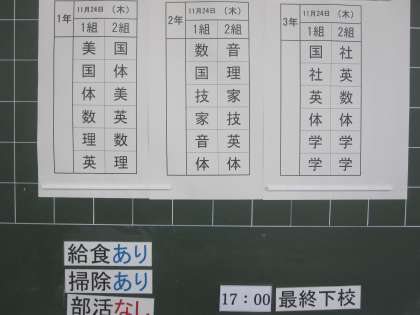 1年 11月24日 (木)
1組 2組
美 国
国 体
体 美
数 英
理 数
英 理
2年 11月24日 (木)
1組 2組
数 音
国 理
技 家
家 技
音 英
体 体
3年 11月24日 (木)
1組 2組
国 社
社 英
英 数
体 体
学 学
学 学
給食あり
掃除あり
部活なし
17:00 最終下校